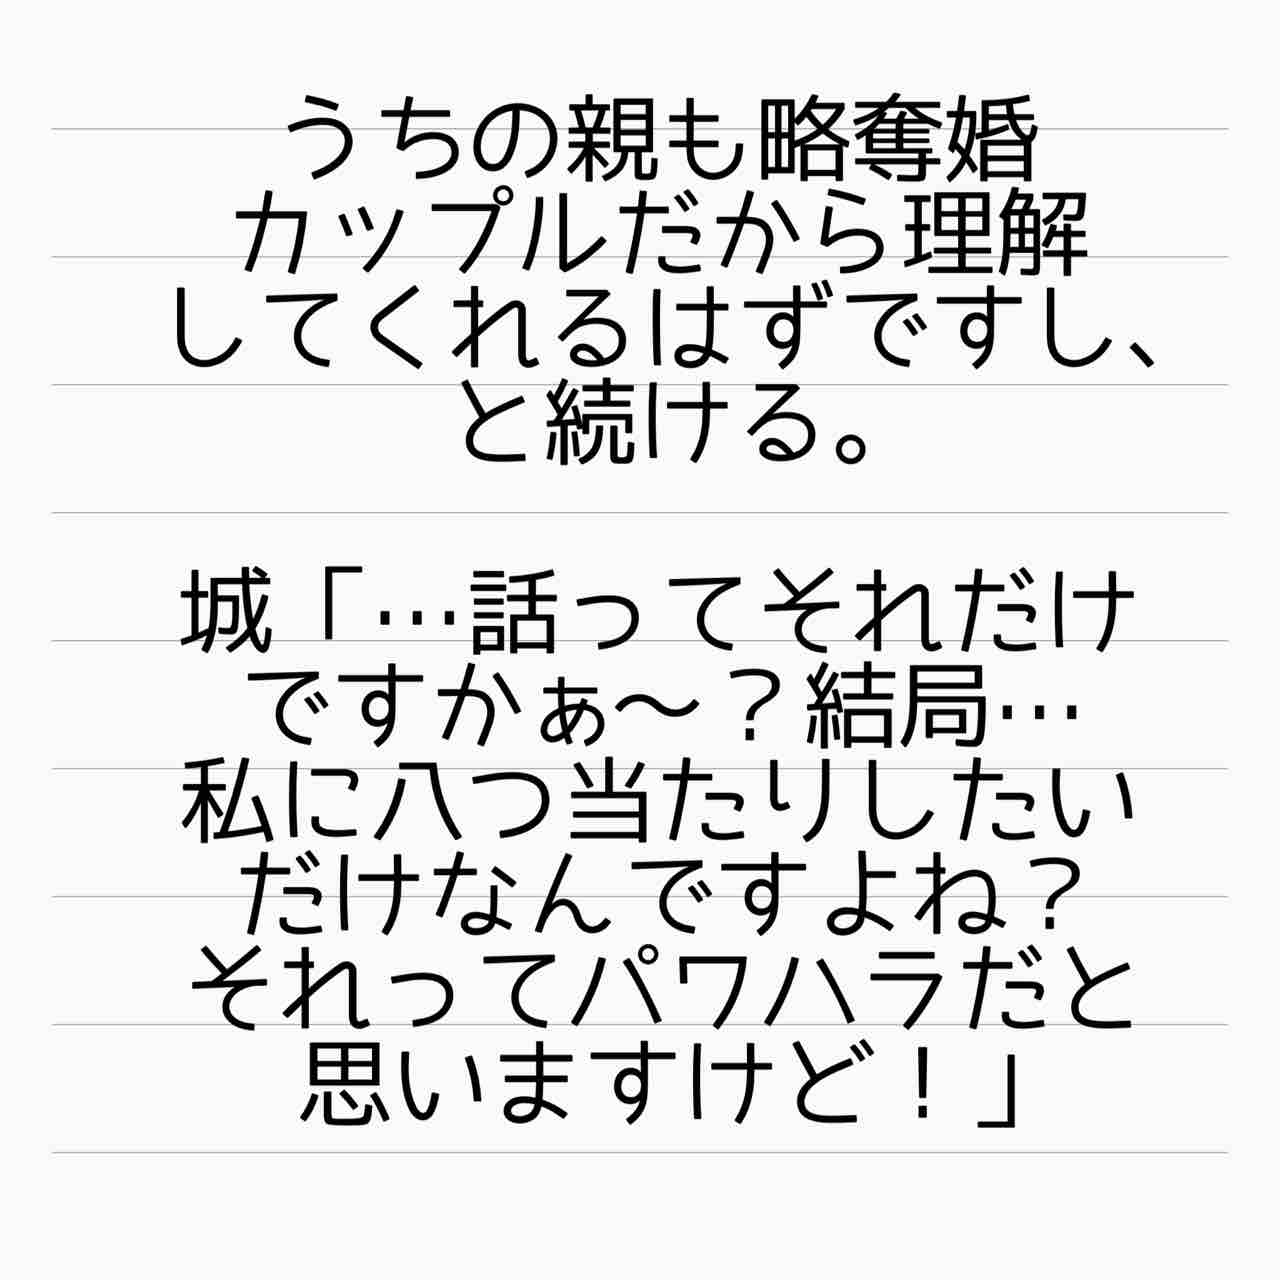 うちの親も略奪婚
カップルだから理解
してくれるはずですし、
と続ける。
城「…話ってそれだけ
ですかぁ〜？結局…
私に八つ当たりしたい
だけなんですよね？
それってパワハラだと
思いますけど！」